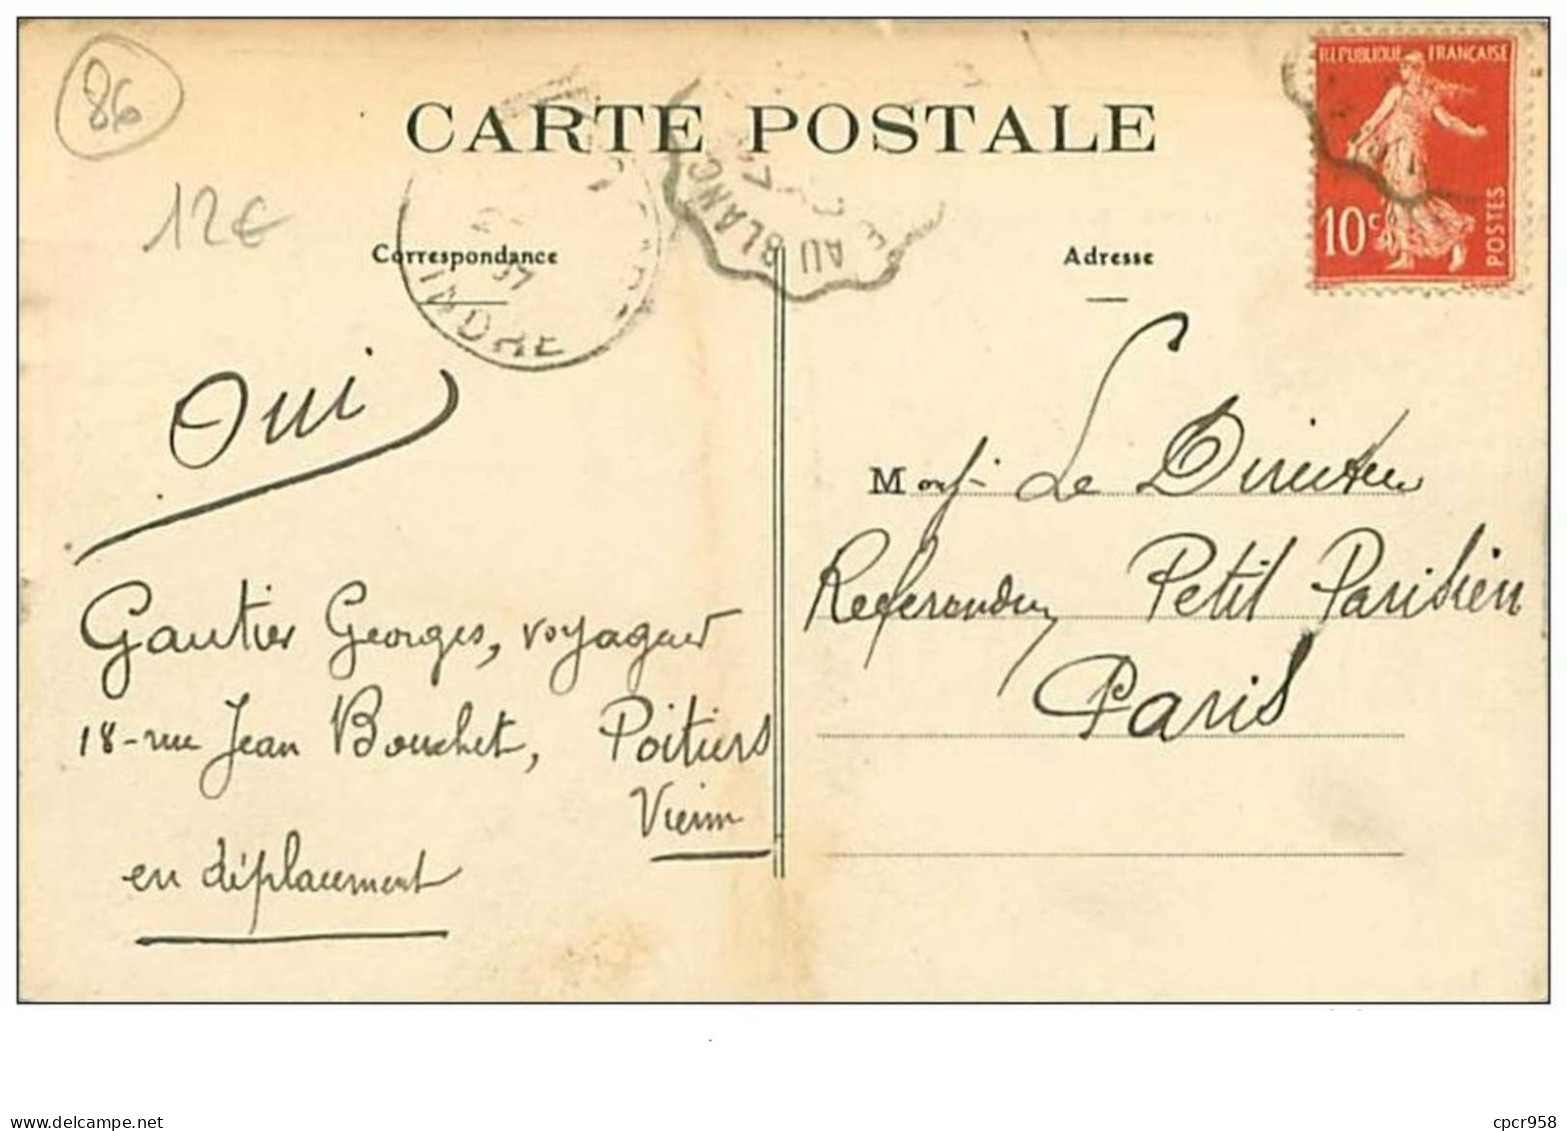 86
12€
CARTE POSTALE
REPUBLIQUE FRANÇAISE
10c
POSTES
AU BLANC
INDRE
Correspondance
Adresse
Oui
Gautier Georges, voyageur
18 - rue Jean Bouchet, Poitiers
Vienne
en déplacement
Mons. Le Directeur
Referendum Petit Parisien
Paris
www.delcampe.net
cpcr958